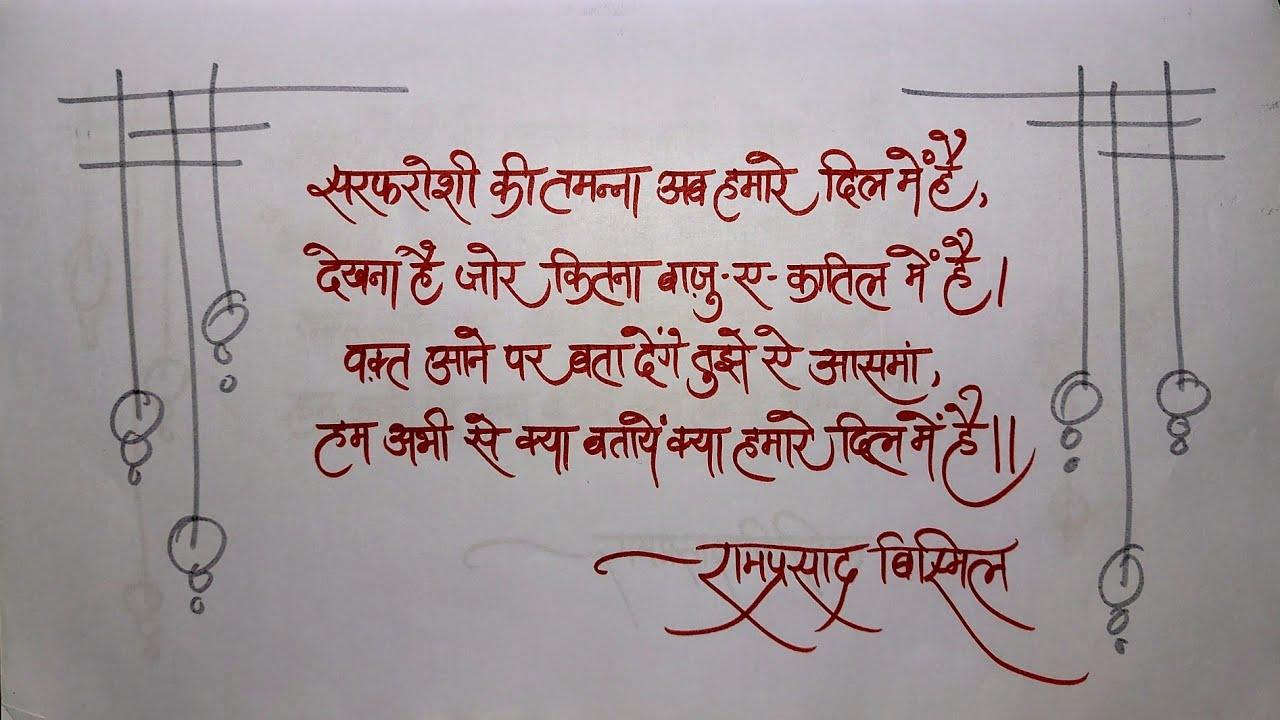 सरफरोशी की तमन्ना अब हमारे दिल में है,
देखना है जोर कितना बाज़ु-ए-कातिल में है।
वक़्त आने पर बता देंगे तुझे ऐ आसमां,
हम अभी से क्या बतायें क्या हमारे दिल में है॥
रामप्रसाद बिस्मिल